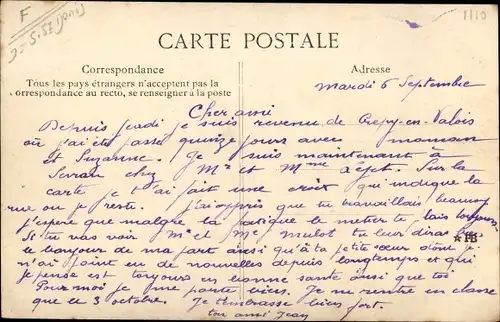 F
1110
CARTE POSTALE
Correspondance
Tous les pays étrangers n'acceptent pas la
correspondance au recto, se renseigner à la poste
Adresse
Mardi 6 Septembre
Cher ami
Depuis Jeudi je suis revenu de Crépy-en-Valois
où j'ai été passé quinze jours avec maman
et Suzanne. Je suis maintenant à
chez Mr et Mme Sur la
carte je t'ai fait une croix qui indique la
rue ou je reste. J'ai appris que tu travaillais beaucoup
j'espère que malgré la fatigue le metier te tais toujours.
Si tu vas voir Mr et Me Mulot tu leur diras bien
le bonjour de ma part ainsi qu'à ta petite sœur dont je
n'ai point eu de nouvelles depuis longtemps et qui
je pense est toujours en bonne santé ainsi que toi
Pour moi je me porte bien. Je ne rentre en classe
que le 3 octobre. Je t'embrasse bien fort.
ton ami Jean